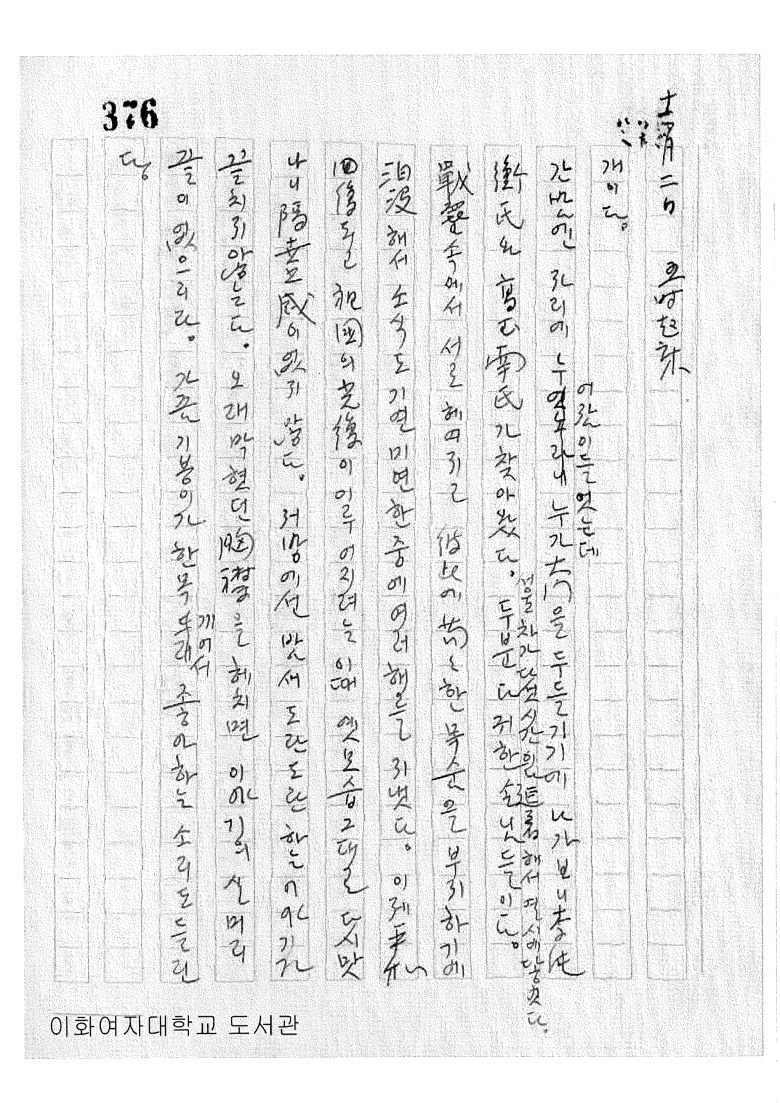 376
十一月 二日 五時起床
개이다.
간밤엔 자리에 누엿노라니 누가 大門을 두들기기에 나가 보니 李
어람이들엇는데
衡氏와 高 南氏가 찾아왔다. 두분 다 귀한 손님들이다.
서울차가 다섯시간을 해서 열시에 당햇다.
戰雲속에서 서로 헤여지고 彼此에 苟々한 목숨을 부지하기에
汨沒해서 소식도 기연미연한 중에 여러해를 지냇다. 이제 平和
回復되고 祖國의 光復이 이루어지려는 이때 옛모습 그대로 다시 맛
나니 隔世感이 없지 않다. 저방에선 밤새 도란도란 하는 이야기가
끝치지 않는다. 오래 막현던 胸襟을 헤치면 이야기의 실머리
끝이 없으리라. 가끔 기봉이가 한목 드래 좋아하는 소리도 들린
깨어서
다.
이화여자대학교 도서관